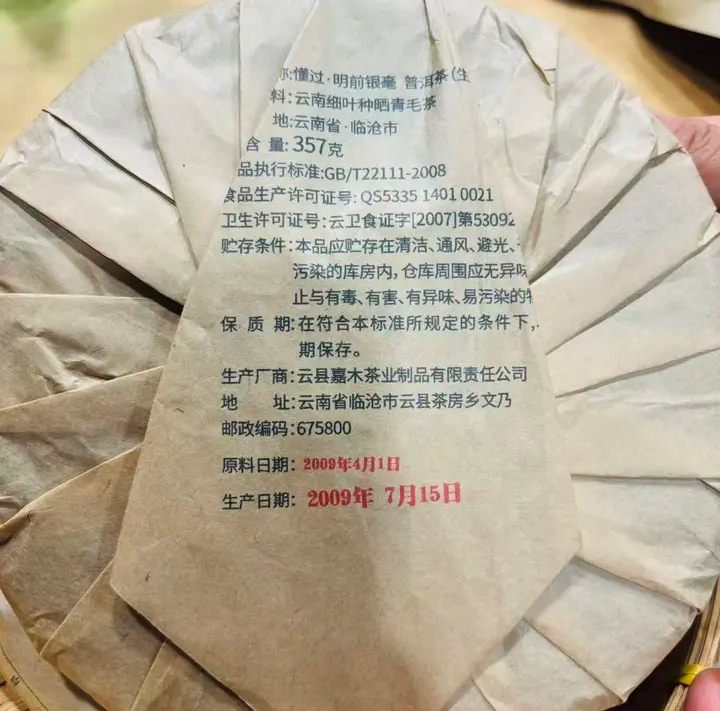 称:懂过·明前银毫 普洱茶(生
料:云南细叶种晒青毛茶
地:云南省·临沧市
含 量:357克
品执行标准:GB/T22111-2008
食品生产许可证号:QS5335 1401 0021
卫生许可证号:云卫食证字[2007]第53092
贮存条件:本品应贮存在清洁、通风、避光、
污染的库房内,仓库周围应无异味
止与有毒、有害、有异味、易污染的
保 质 期:在符合本标准所规定的条件下,
期保存。
生产厂商:云县嘉木茶业制品有限责任公司
地 址:云南省临沧市云县茶房乡文乃
邮政编码:675800
原料日期:2009年4月1日
生产日期:2009年 7月15日